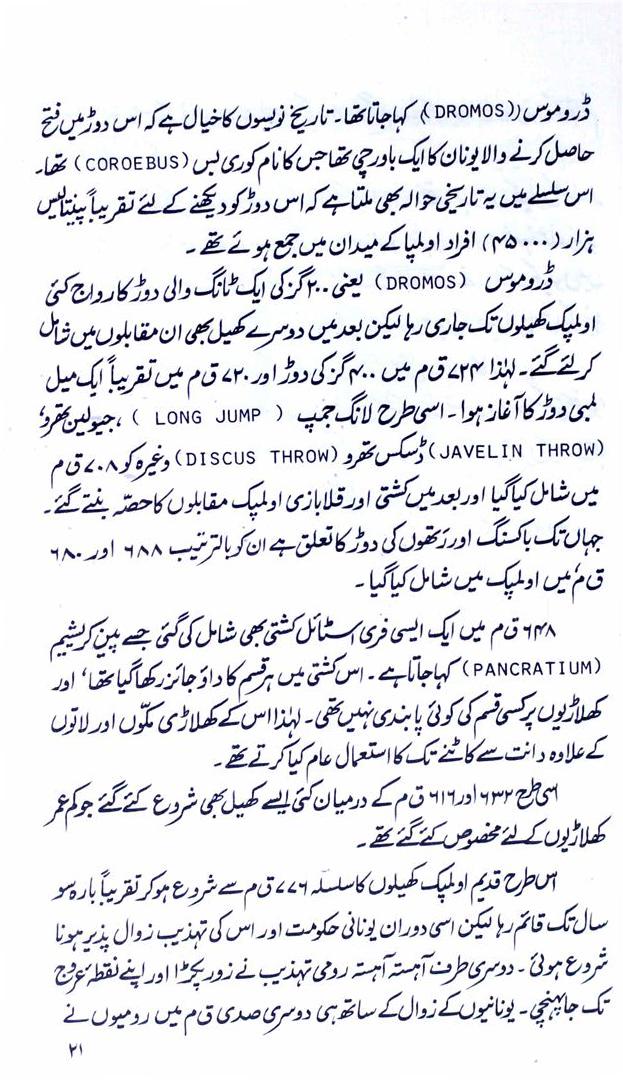 ڈروموس (DROMOS) کہا جاتا تھا۔ تاریخ نویسوں کا خیال ہے کہ اس دوڑ میں فتح
حاصل کرنے والا یونان کا ایک باورچی تھا جس کا نام کوری بس (COROEBUS) تھا۔
اس سلسلے میں یہ تاریخی حوالہ بھی ملتا ہے کہ اس دوڑ کو دیکھنے کے لئے تقریباً پینتالیس
ہزار (۴۵۰۰۰) افراد اولمپا کے میدان میں جمع ہوئے تھے۔
ڈروموس (DROMOS) یعنی ۲۰۰ گز کی ایک ٹانگ والی دوڑ کا رواج کئی
اولمپک کھیلوں تک جاری رہا لیکن بعد میں دوسرے کھیل بھی ان مقابلوں میں شامل
کر لئے گئے۔ لہٰذا ۷۲۴ ق م میں ۴۰۰ گز کی دوڑ اور ۷۲۰ ق م میں تقریباً ایک میل
لمبی دوڑ کا آغاز ہوا۔ اسی طرح لانگ جمپ ( LONG JUMP ) ، جیولین تھرو،
(JAVELIN THROW) ڈسکس تھرو (DISCUS THROW) وغیرہ کو ۷۰۸ ق م
میں شامل کیا گیا اور بعد میں کشتی اور قلابازی اولمپک مقابلوں کا حصّہ بنتے گئے۔
جہاں تک باکسنگ اور رتھوں کی دوڑ کا تعلق ہے ان کو بالترتیب ۶۸۸ اور ۶۸۰
ق م میں اولمپک میں شامل کیا گیا۔
۶۴۸ ق م میں ایک ایسی فری اسٹائل کشتی بھی شامل کی گئی جسے پین کریشیم
(PANCRATIUM) کہا جاتا ہے۔ اس کشتی میں ہر قسم کا داؤ جائز رکھا گیا تھا، اور
کھلاڑیوں پر کسی قسم کی کوئی پابندی نہیں تھی۔ لہٰذا اس کے کھلاڑی مکّوں اور لاتوں
کے علاوہ دانت سے کاٹنے تک کا استعمال عام کیا کرتے تھے۔
اسی طرح ۶۳۲ اور ۶۱۶ ق م کے درمیان کئی ایسے کھیل بھی شروع کئے گئے جو کم عمر
کھلاڑیوں کے لئے مخصوص کئے گئے تھے۔
اس طرح قدیم اولمپک کھیلوں کا سلسلہ ۷۷۶ ق م سے شروع ہو کر تقریباً بارہ سو
سال تک قائم رہا لیکن اسی دوران یونانی حکومت اور اس کی تہذیب زوال پذیر ہونا
شروع ہوئی۔ دوسری طرف آہستہ آہستہ رومی تہذیب نے زور پکڑا اور اپنے نقطۂ عروج
تک جا پہنچی۔ یونانیوں کے زوال کے ساتھ ہی دوسری صدی ق م میں رومیوں نے
۲۱